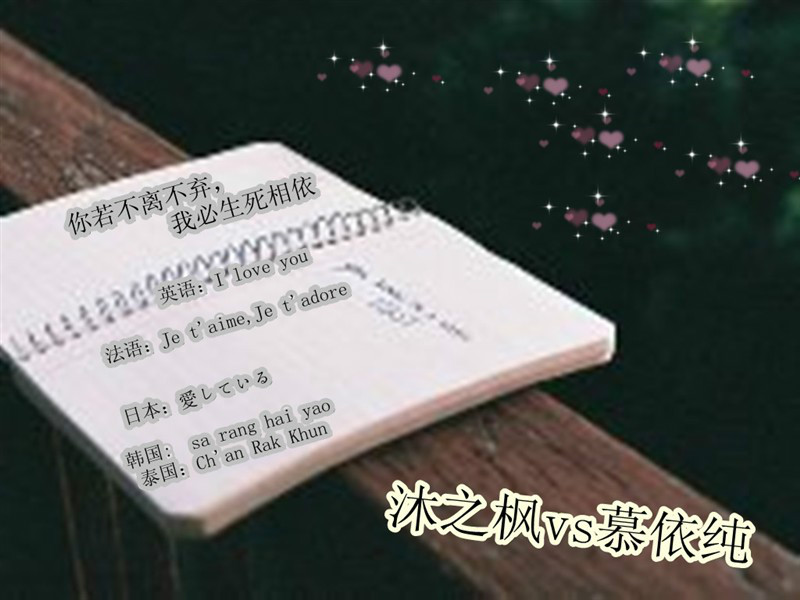 你若不离不弃，
我必生死相依
英语：I love you
法语：Je t'aime,Je t'adore
日本：愛している
韩国： sa rang hai yao
泰国：Ch'an Rak Khun
沐之枫vs慕依纯